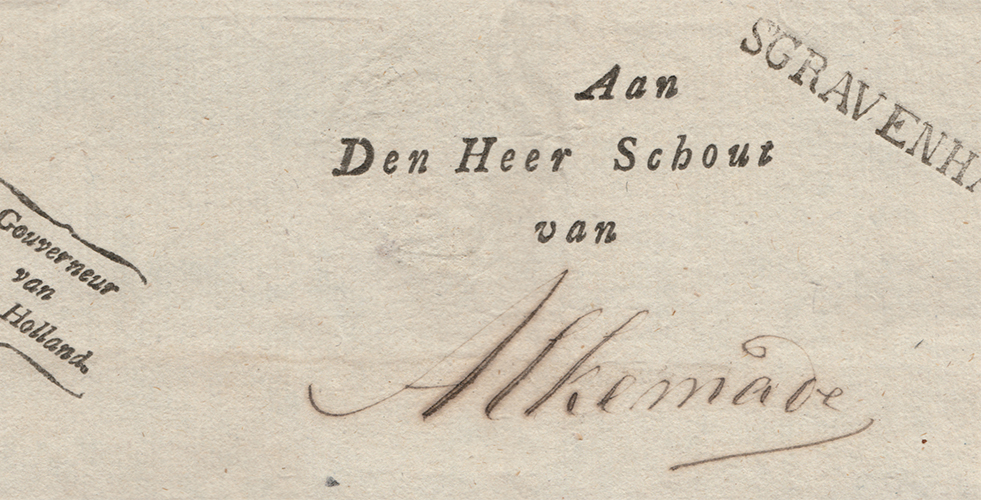 SGRAVENHA
Aan
Den Heer Schout
van
Alkemade
Gouverneur
van
Holland.